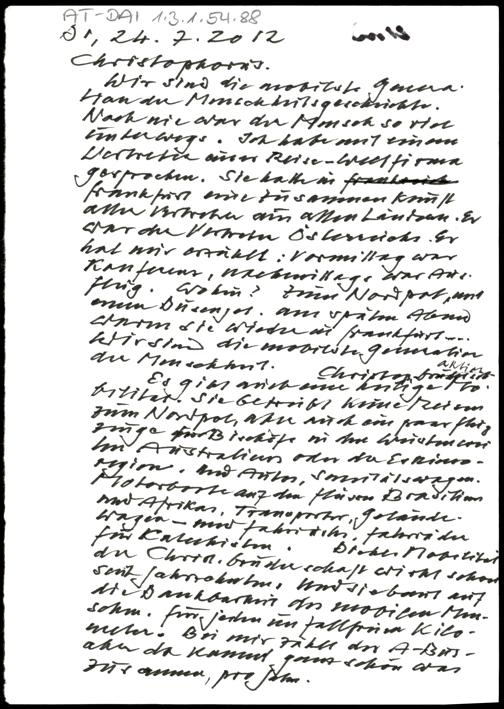 AT-DAI 1.3.1.54.88
Di, 24.7.2012
Christophorus.
Wir sind die mobilste Genera-
tion der Menschheitsgeschichte.
Noch nie war der Mensch so viel
unterwegs. Ich habe mit einem
Vertreter einer Reise-Weltfirma
gesprochen. Sie hatte in Frankreich
Frankfurt eine Zusammenkunft
aller Vertreter aus allen Ländern. Er
war der Vertreter Österreichs. Er
hat mir erzählt: Vormittag war
Konferenz, nachmittags war Aus-
flug. Wohin? Zum Nordpol, mit
einem Düsenjet. am späten Abend
waren sie wieder in Frankfurt...
Wir sind die mobilste Generation
der Menschheit.
Christoph aktion
Es gibt auch eine heilige Mo-
bilität. Sie betreibt keine Reisen
zum Nordpol, aber auch ein paar Flug-
zeuge für Bischöfe in den Wüsteneien
Australiens oder der Eskimo-
region. und Autos, Sanitätswagen.
Motorboote auf den Flüssen Brasiliens
und Afrikas, Transporter, Gelände-
wagen – und Fahrräder, Fahrräder
für Katecheten. Diese Mobilität
der Christ.bruderschaft wirkt schon
seit Jahrzehnten. Und sie baut auf
die Dankbarkeit des mobilen Men-
schen. Für jeden unfallfreien Kilo-
meter. Bei mir zählt der A-Bus-
aber da kommt ganz schön was
zusammen, pro Jahr.